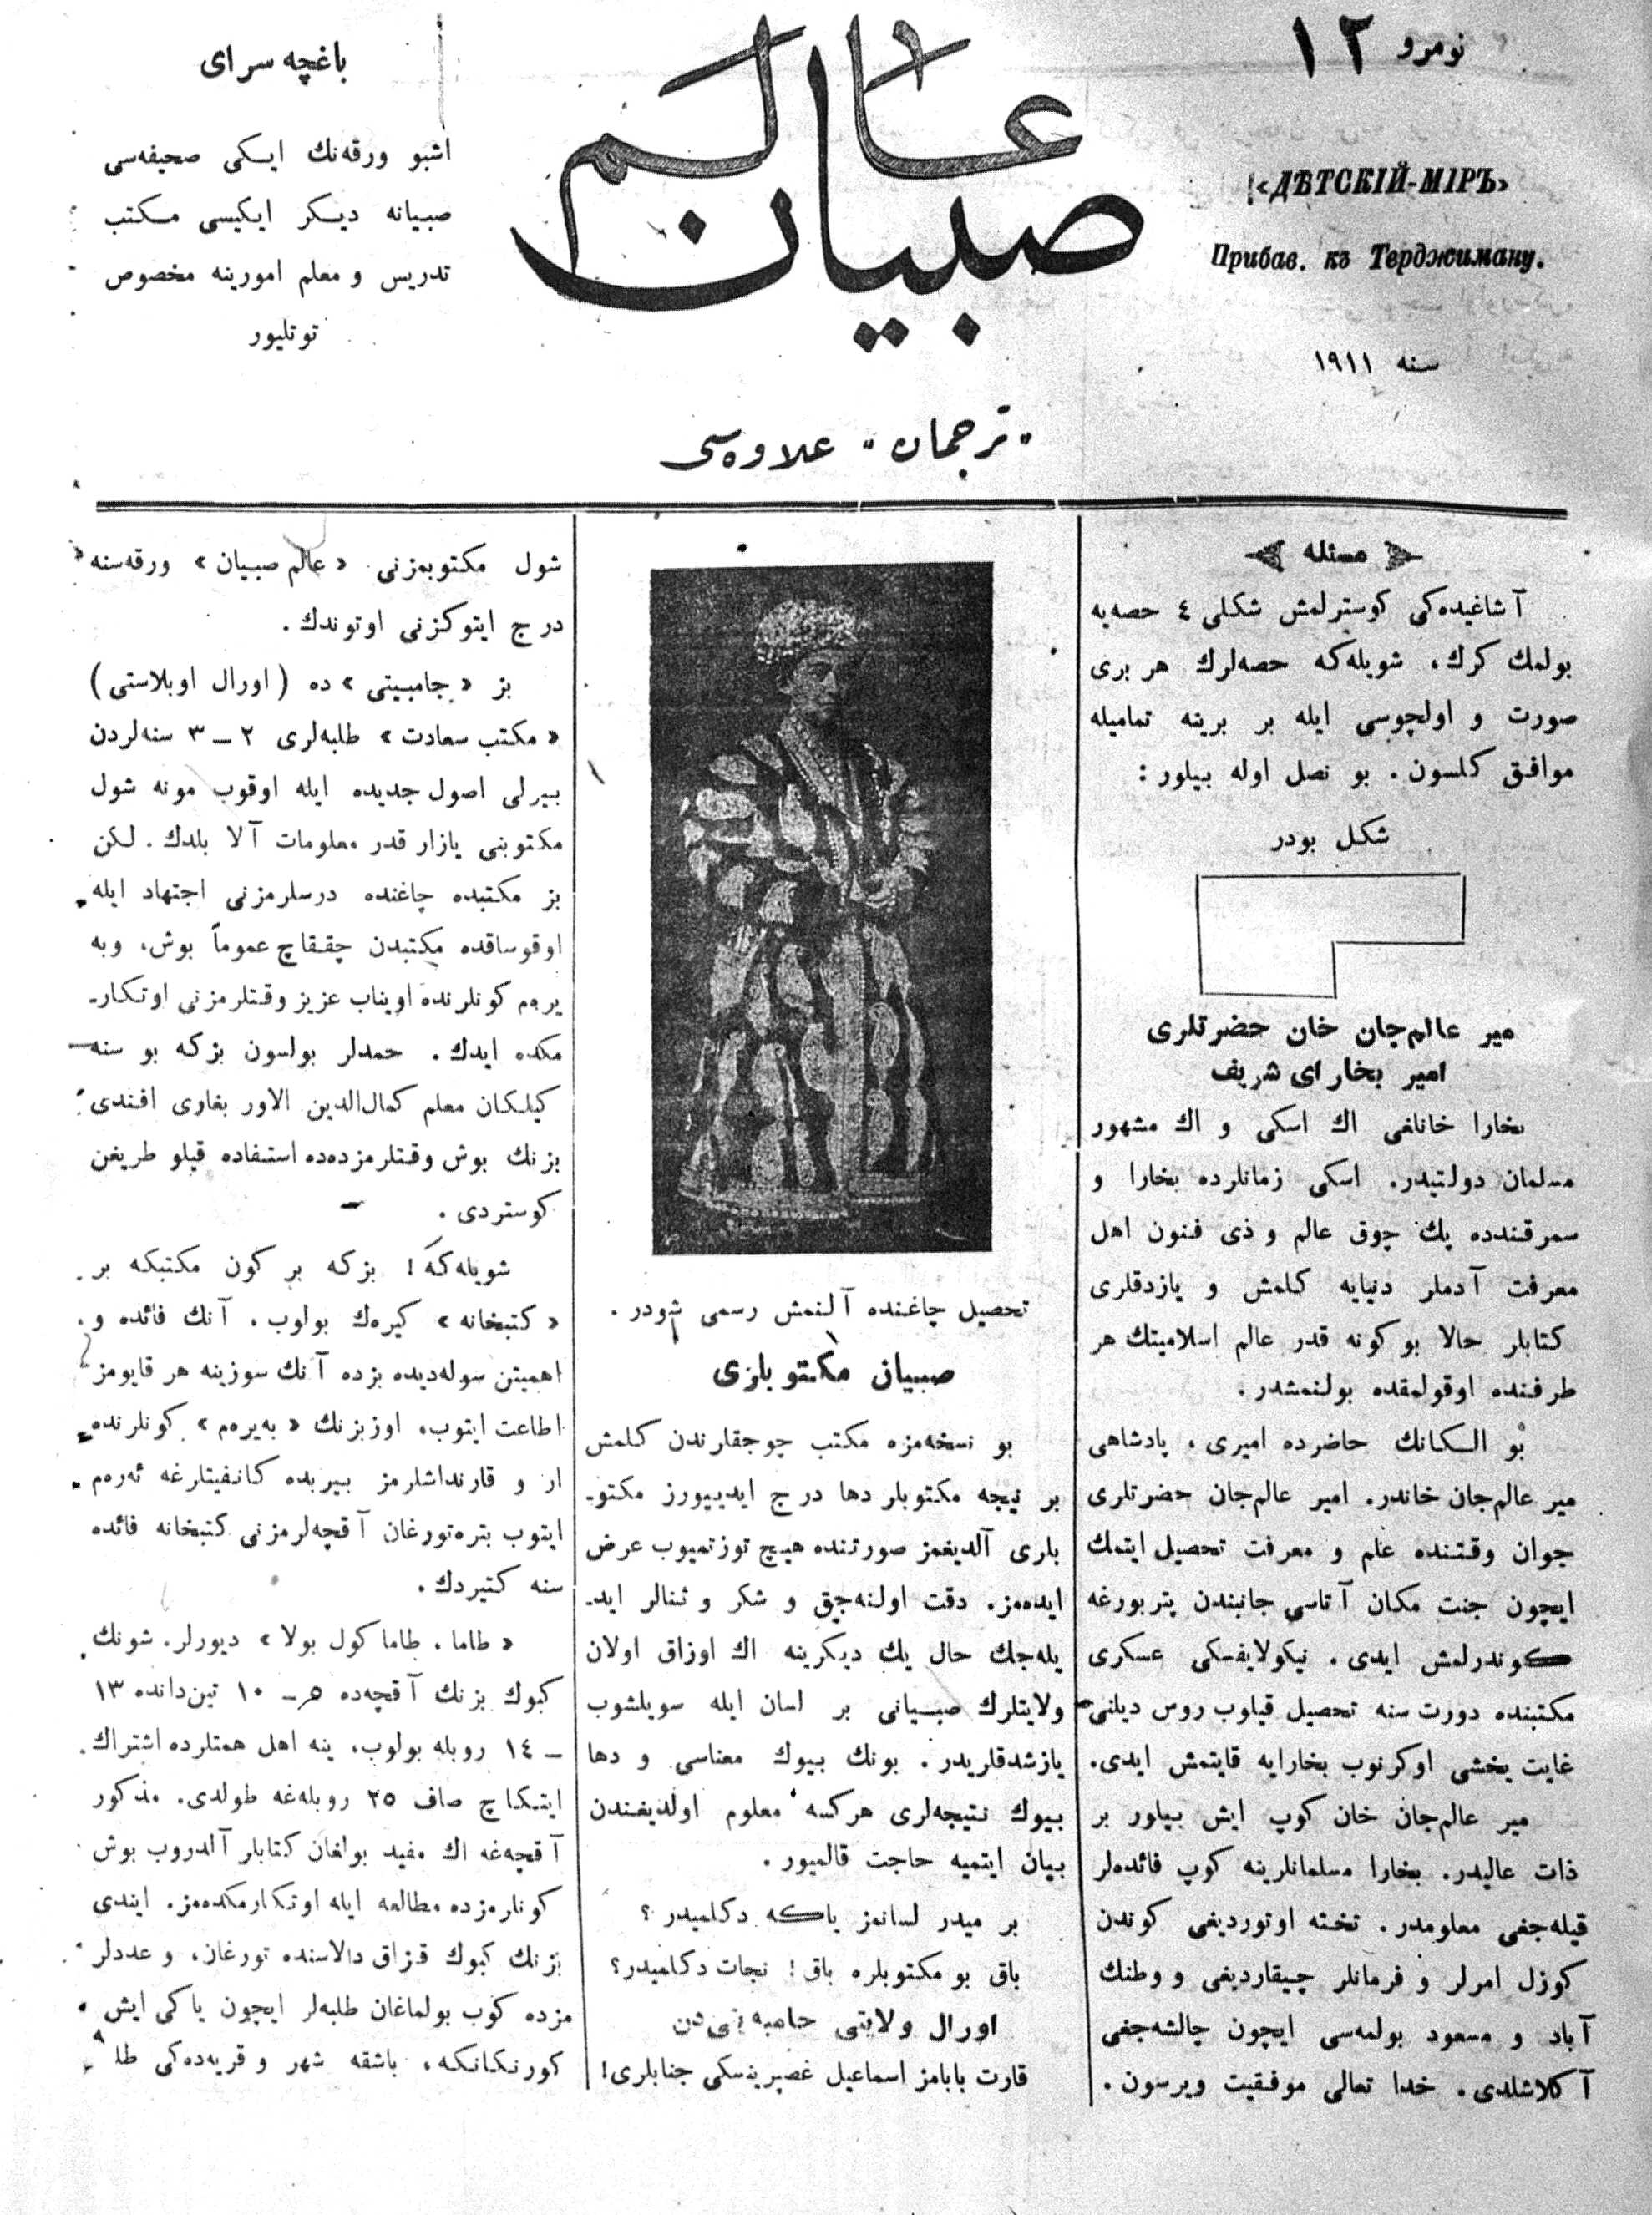 نومرو ١٢
«ДѢТСКІЙ-МІРЪ»
Прибав. къ Терджиману.
سنه ١٩١١
عالم
صبيان
«ترجمان» علاوه‌سی
باغچه سرای
اشبو ورقه‌نك ايكی صحيفه‌سی
صبيانه ديكر ايكيسی مكتب
تدريس و معلم امورينه مخصوص
توتليور
مسئله
آشاغيده‌كی كوسترلمش شكلی ٤ حصه‌يه
بولمك كرك، شويله‌كه حصه‌لرك هر بری
صورت و اولچوسی ايله بر برينه تماميله
موافق كلسون. بو نصل اوله بيلور:
شكل بودر
مير عالم‌جان خان حضرتلری
امير بخارای شريف
بخارا خانلغی اك اسكی و اك مشهور
مسلمان دولتيدر. اسكی زمانلرده بخارا و
سمرقندده پك چوق عالم و ذی فنون اهل
معرفت آدملر دنيايه كلمش و يازدقلری
كتابلر حالا بو كونه قدر عالم اسلاميتك هر
طرفنده اوقولمقده بولنمشدر.
بو الكانك حاضرده اميری، پادشاهی
مير عالم‌جان خاندر. امير عالم‌جان حضرتلری
جوان وقتنده علم و معرفت تحصيل ايتمك
ايچون جنت مكان آتاسی جانبندن پتربورغه
كوندرلمش ايدی. نيكولايفسكی عسكری
مكتبنده دورت سنه تحصيل قيلوب روس ديلنی
غايت يخشی اوكرنوب بخارايه قايتمش ايدی.
مير عالم‌جان خان كوپ ايش بيلور بر
ذات عاليدر. بخارا مسلمانلرينه كوپ فائده‌لر
قيله‌جغی معلومدر. تخته اوتورديغی كوندن
كوزل امرلر و فرمانلر چيقارديغی و وطنك
آباد و مسعود بولمه‌سی ايچون چالشه‌جغی
آكلاشلدی. خدا تعالی موفقيت ويرسون.
تحصيل چاغنده آلنمش رسمی شودر.
صبيان مكتوبلری
بو نسخه‌مزه مكتب چوجقلرندن كلمش
بر نيچه مكتوبلر دها درج ايدييورز مكتو-
بلری آلديغمز صورتنده هيچ توزتميوب عرض
ايده‌مز. دقت اولنه‌جق و شكر و ثنالر ايد-
يله‌جك حال يك ديكرينه اك اوزاق اولان
ولايتلرك صبيانی بر لسان ايله سويلشوب
يازشدقلريدر. بونك بيوك معناسی و دها
بيوك نتيجه‌لری هركسه معلوم اولديغندن
بيان ايتميه حاجت قالميور.
بر ميدر لسانمز ياكه دكلميدر؟
باق بو مكتوبلره باق! نجات دكلميدر؟
اورال ولايتی جامبه‌تی‌دن
قارت بابامز اسماعيل غصپرينسكی جنابلری!
شول مكتوبمزنی «عالم صبيان» ورقه‌سنه
درج ايتوكزنی اوتوندك.
بز «جامبيتی» ده (اورال اوبلاستی)
«مكتب سعادت» طلبه‌لری ٢ــ٣ سنه‌لردن
بيرلی اصول جديده ايله اوقوب مونه شول
مكتوبنی يازار قدر معلومات آلا بلدك. لكن
بز مكتبده چاغنده درسلرمزنی اجتهاد ايله
اوقوساقده مكتبدن چقـقاچ عموماً بوش، وبه
يره‌م كونلرنده اويناب عزيز وقتلرمزنی اوتكار-
مكده ايدك. حمدلر بولسون بزكه بو سنه
كيلكان معلم كمال‌الدين الاور بغاوی افندی
بزنك بوش وقتلرمزده‌ده استفاده قيلو طريغن
كوستردی.
شويله‌كه! بزكه بر كون مكتبكه بر
«كتبخانه» كيره‌ك بولوب، آنك فائده و
اهميتن سوله‌ديده بزده آنك سوزينه هر قايومز
اطاعت ايتوب، اوزبزنك «به‌يره‌م» كونلرنده
ار و قارنداشلرمز بيربده كانفيتلرغه ئه‌ره‌م
ايتوب بتره‌تورغان آقچه‌لرمزنی كتبخانه فائده
سنه كتيردك.
«طاما، طاما كول بولا» ديورلر. شونك
كبوك بزنك آقچه‌ده ٥ــ١٠ تين‌دانده ١٣
ــ١٤ روبله بولوب، ينه اهل همتلرده اشتراك
ايتكاچ صاف ٢٥ روبله‌غه طولدی. مذكور
آقچه‌غه اك مفيد بولغان كتابلر آلدروب بوش
كونلرمزده مطالعه ايله اوتكارمكده‌مز. ايندی
بزنك كبوك قزاق دالاسنده تورغان، و عددلر
مزده كوب بولماغان طلبه‌لر ايچون ياكی ايش
كورنكانكه، باشقه شهر و قريه‌ده‌كی طلا